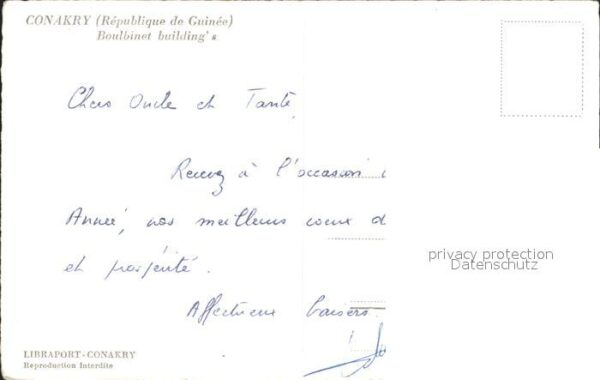 CONAKRY (République de Guinée)
Boulbinet building's
Chers Oncle et Tante,
Recevez à l'occasion
Année, nos meilleurs voeux d
et prospérité.
Affectueux baisers.
privacy protection
Datenschutz
LIBRAPORT-CONAKRY
Reproduction Interdite